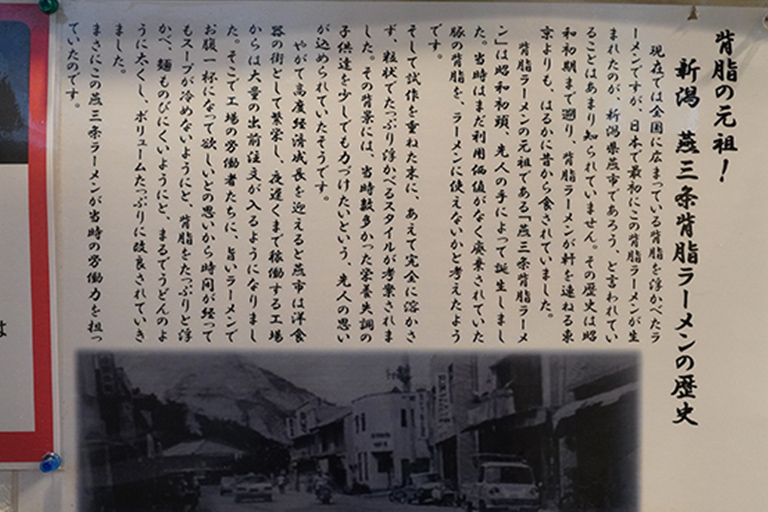 背脂の元祖!
新潟 燕三条背脂ラーメンの歴史
現在では全国に広まっている背脂を浮かべたラ
ーメンですが、日本で最初にこの背脂ラーメンが生
まれたのが、新潟県燕市であろう、と言われてい
ることはあまり知られていません。その歴史は昭
和初期まで遡り、背脂ラーメンが軒を連ねる東
京よりも、はるかに昔から食されていました。
背脂ラーメンの元祖である「燕三条背脂ラーメ
ン」は昭和初頭、先人の手によって誕生しまし
た。当時はまだ利用価値がなく廃棄されていた
豚の背脂を、ラーメンに使えないかと考えたよう
です。
そして試作を重ねた末に、あえて完全に溶かさ
ず、粒状でたっぷり浮かべるスタイルが考案されま
した。その背景には、当時数多かった栄養失調の
子供達を少しでも力づけたいという、先人の思い
が込められていたそうです。
やがて高度経済成長を迎えると燕市は洋食
器の街として繁栄し、夜遅くまで稼働する工場
からは大量の出前注文が入るようになりまし
た。そこで工場の労働者たちに、旨いラーメンで
お腹一杯になって欲しいとの思いから時間が経って
もスープが冷めないようにと、背脂をたっぷりと浮
かべ、麺ものびにくいようにと、まるでうどんのよ
うに太くし、ボリュームたっぷりに改良されていき
ました。
まさにこの燕三条ラーメンが当時の労働力を担っ
ていたのです。
は